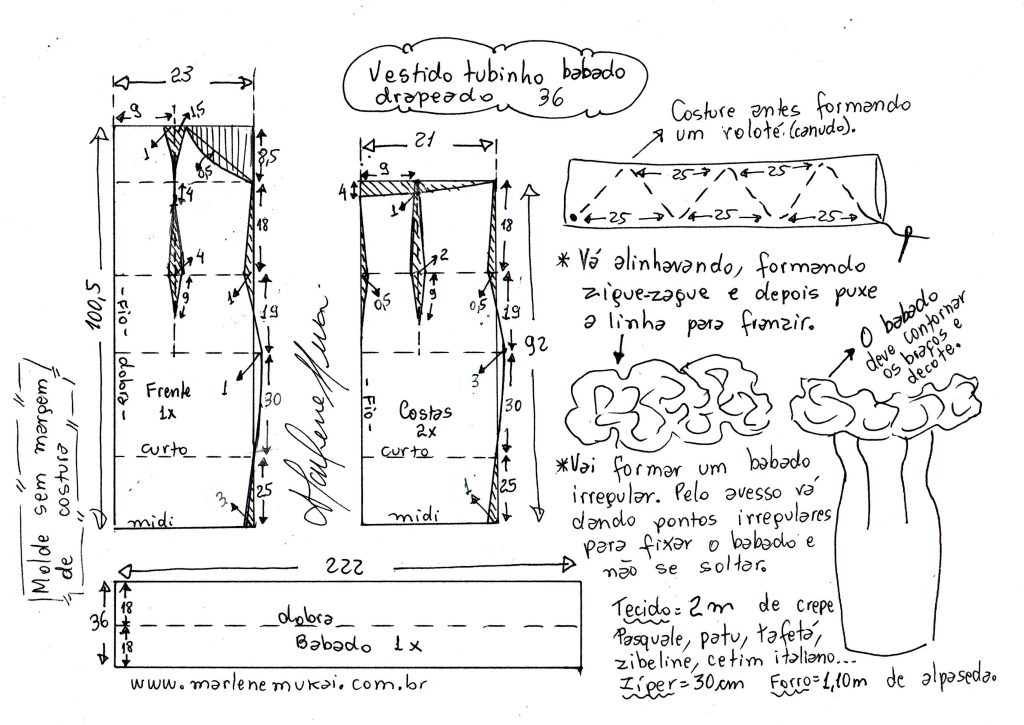 Vestido tubinho babado
drapeado 36
23
9
1,5
1
0,5
8,5
4
18
4
9
1
19
1
30
25
3
100,5
- Fio - dobra -
Frente
1x
curto
midi
Molde sem margem
de costura
Marlene Mukai.
21
9
4
1
18
2
9
0,5
0,5
19
3
92
Fio -
Costas
2x
30
curto
25
1
midi
Costure antes formando
um roloté. (canudo).
25 25
25 25 25
* Vá alinhavando, formando
zigue-zague e depois puxe
a linha para franzir.
O babado
deve contornar
os braços e
decote.
*Vai formar um babado
irregular. Pelo avesso vá
dando pontos irregulares
para fixar o babado e
não se soltar.
222
36
18
18
dobra
Babado 1x
www.marlenemukai.com.br
Tecido= 2 m de crepe
Pasquale, patu, tafetá,
zibeline, cetim italiano...
Zíper= 30,cm Forro= 1,10m de alpaseda.